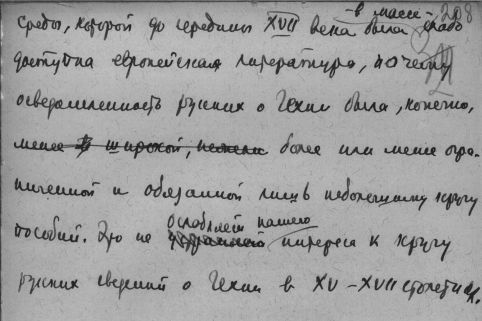 среды, которой до середины XVII века была – в массе – слабо 208
доступна европейская литература, почему
осведомленность русских о Чехии была, конечно,
менее широкой, нежели более или менее огра-
ниченной и обязанной лишь небольшому кругу
ослабляет нашего
пособий. Это не интереса к кругу
русских сведений о Чехии в XV–XVII столетиях.